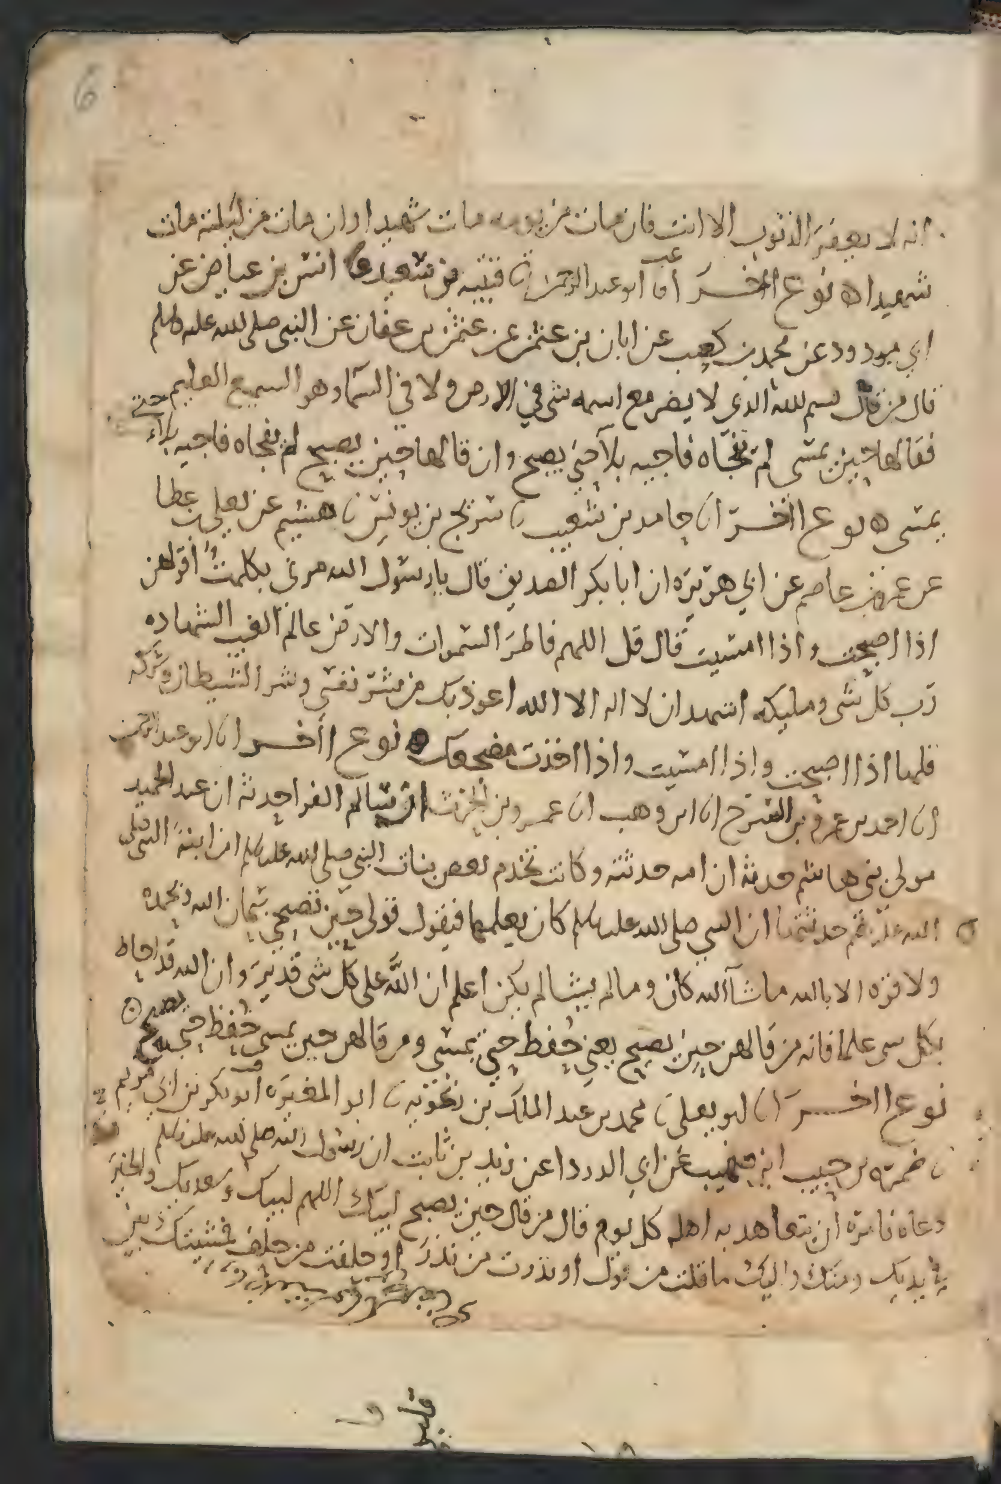 6
انه لا يغفر الذنوب الا انت فان مات من يومه مات شهيدا وان مات من ليلته مات
شهيدا ه نوع اخر انا ابو عبد الرحمن قتيبه بن سعيد انس بن عياض عن
ابي مودود عن محمد بن كعب عن ابان بن عثمن عن عثمن بن عفان عن النبي صلى الله عليه وسلم
قال من قال بسم الله الذي لا يضر مع اسمه شي في الارض ولا في السما وهو السميع العليم
فقالها حين يمسى لم تفجاه فاجيه بلا حتى يصبح وان قالها حين يصبح لم يفجاه فاجيه بلاء حتى
يمسى ه نوع اخر حامد بن شعيب سريج بن يونس هشيم عن يعلى بن عطا
عن عمرو بن عاصم عن ابي هريره ان ابا بكر الصديق قال يا رسول الله مرنى بكلمت اقولهن
اذا اصبحت واذا امسيت قال قل اللهم فاطر السموات والارض عالم الغيب الشهاده
رب كل شي ومليكه اشهد ان لا اله الا الله اعوذ بك من شر نفسي وشر الشيطان وشركه
قلها اذا اصبحت واذا امسيت واذا اخذت مضجعك ه نوع اخر انا ابو عبد الرحمن
انا احمد بن عمرو بن السرح انا ابن وهب انا عمرو بن الحرث ان سالم الفرا حدثه ان عبد الحميد
مولى بني هاشم حدثه ان امه حدثته وكانت تخدم بعض بنات النبي صلى الله عليه وسلم ان ابنة النبي صلى
الله عليه وسلم حدثتها ان النبي صلى الله عليه وسلم كان يعلمها فيقول قولي حين تصبحي سبحان الله وبحمده
ولا قوه الا بالله ما شا الله كان وما لم يشا لم يكن اعلم ان الله على كل شي قدير وان الله قد احاط
بكل شي علما فانه من قالهن حين يصبح يعني حفظ حتى يمسى ومن قالهن حين يمسى حفظ حتى يصبح
نوع اخر ابو يعلى محمد بن عبد الملك بن زنجويه ابو المغيره ابو بكر بن ابي مريم
ضمره بن حبيب ابن صهيب عن ابي الدردا عن زيد بن ثابت ان رسول الله صلى الله عليه وسلم
دعاه فامره ان يتعاهد به اهله كل يوم قال من قال حين يصبح لبيك اللهم لبيك وسعديك والخير
في يديك ومنك واليك ما قلت من قول او نذرت من نذر او حلفت من حلف فمشيتك بين